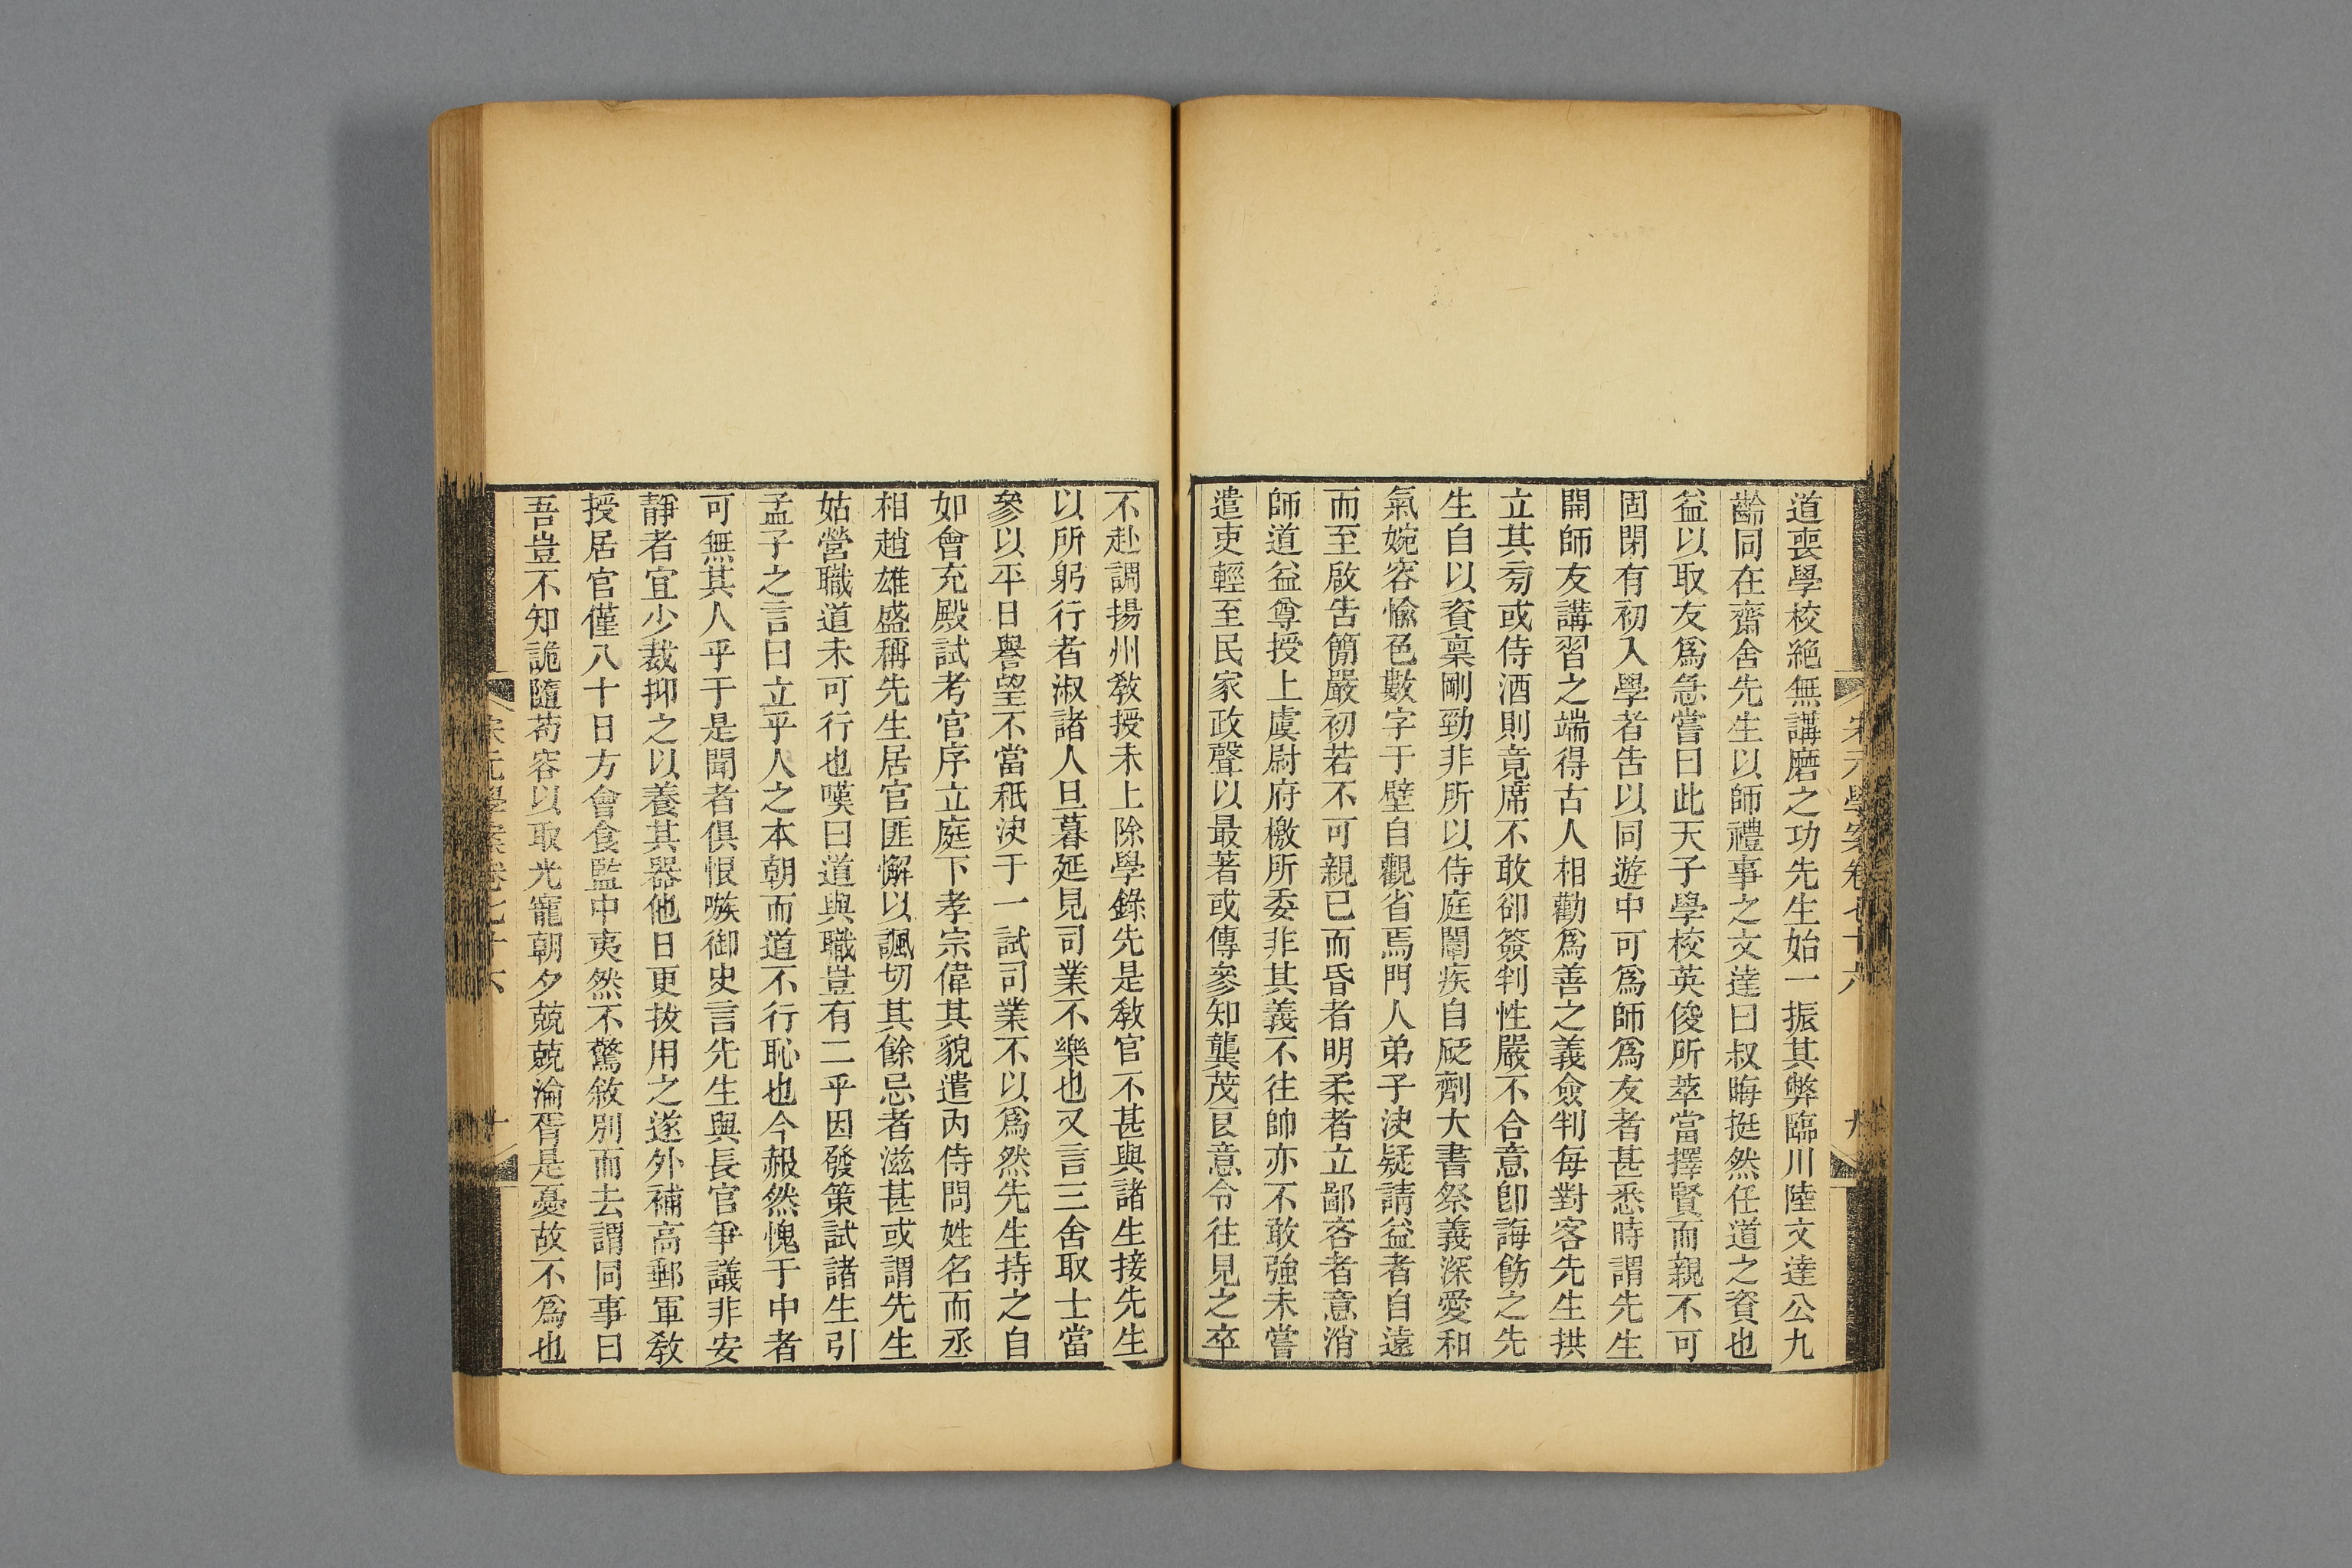 宋元學案卷七十六
九
道喪學校絕無講磨之功先生始一振其弊臨川陸文達公九
齡同在齋舍先生以師禮事之文達曰叔晦挺然任道之資也
益以取友爲急嘗曰此天子學校英俊所萃當擇賢而親不可
固閉有初入學者告以同遊中可爲師爲友者甚悉時謂先生
開師友講習之端得古人相勸爲善之義僉判每對客先生拱
立其旁或侍酒則竟席不敢卻簽判性嚴不合意卽誨飭之先
生自以資稟剛勁非所以侍庭闈疾自砭劑大書祭義深愛和
氣婉容愉色數字于壁自觀省焉門人弟子決疑請益者自遠
而至啟告簡嚴初若不可親已而昏者明柔者立鄙吝者意消
師道益尊授上虞尉府檄所委非其義不往帥亦不敢強未嘗
遣吏輕至民家政聲以最著或傳參知龔茂良意令往見之卒
不赴調揚州敎授未上除學錄先是敎官不甚與諸生接先生
以所躬行者淑諸人旦暮延見司業不樂也又言三舍取士當
參以平日譽望不當秪決于一試司業不以爲然先生持之自
如會充殿試考官序立庭下孝宗偉其貌遣內侍問姓名而丞
相趙雄盛稱先生居官匪懈以諷切其餘忌者滋甚或謂先生
姑營職道未可行也嘆曰道與職豈有二乎因發策試諸生引
孟子之言曰立乎人之本朝而道不行恥也今赧然愧于中者
可無其人乎于是聞者俱恨嗾御史言先生與長官爭議非安
靜者宜少裁抑之以養其器他日更拔用之遂外補高郵軍敎
授居官僅八十日方會食監中夷然不驚敘別而去謂同事曰
吾豈不知詭隨苟容以取光寵朝夕兢兢淪胥是憂故不爲也
宋元學案卷七十六
十